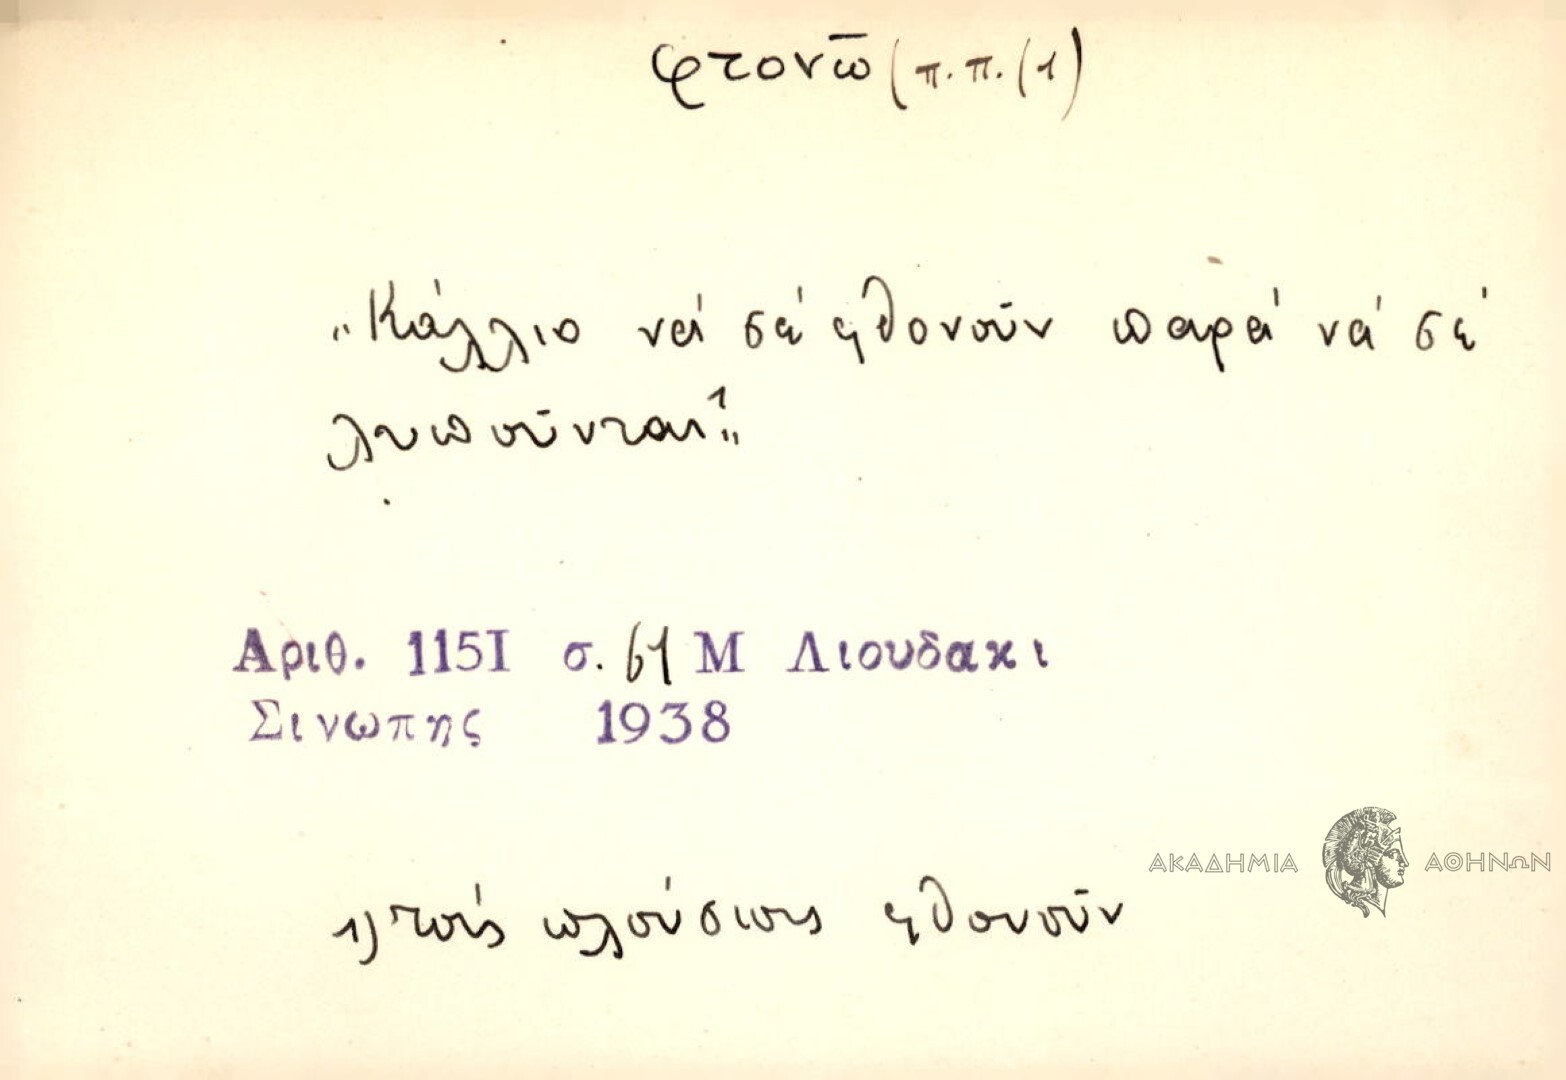 φτονῶ (π.π. (1)
„Κάλλιο νά σέ φθονοῦν παρά νά σέ
λυποῦνται"1
Αριθ. 1151 σ. 61 Μ Λιουδακι
Σινωπης 1938
ΑΚΑΔΗΜΙΑ ΑΘΗΝΩΝ
1) τούς πλούσιους φθονοῦν